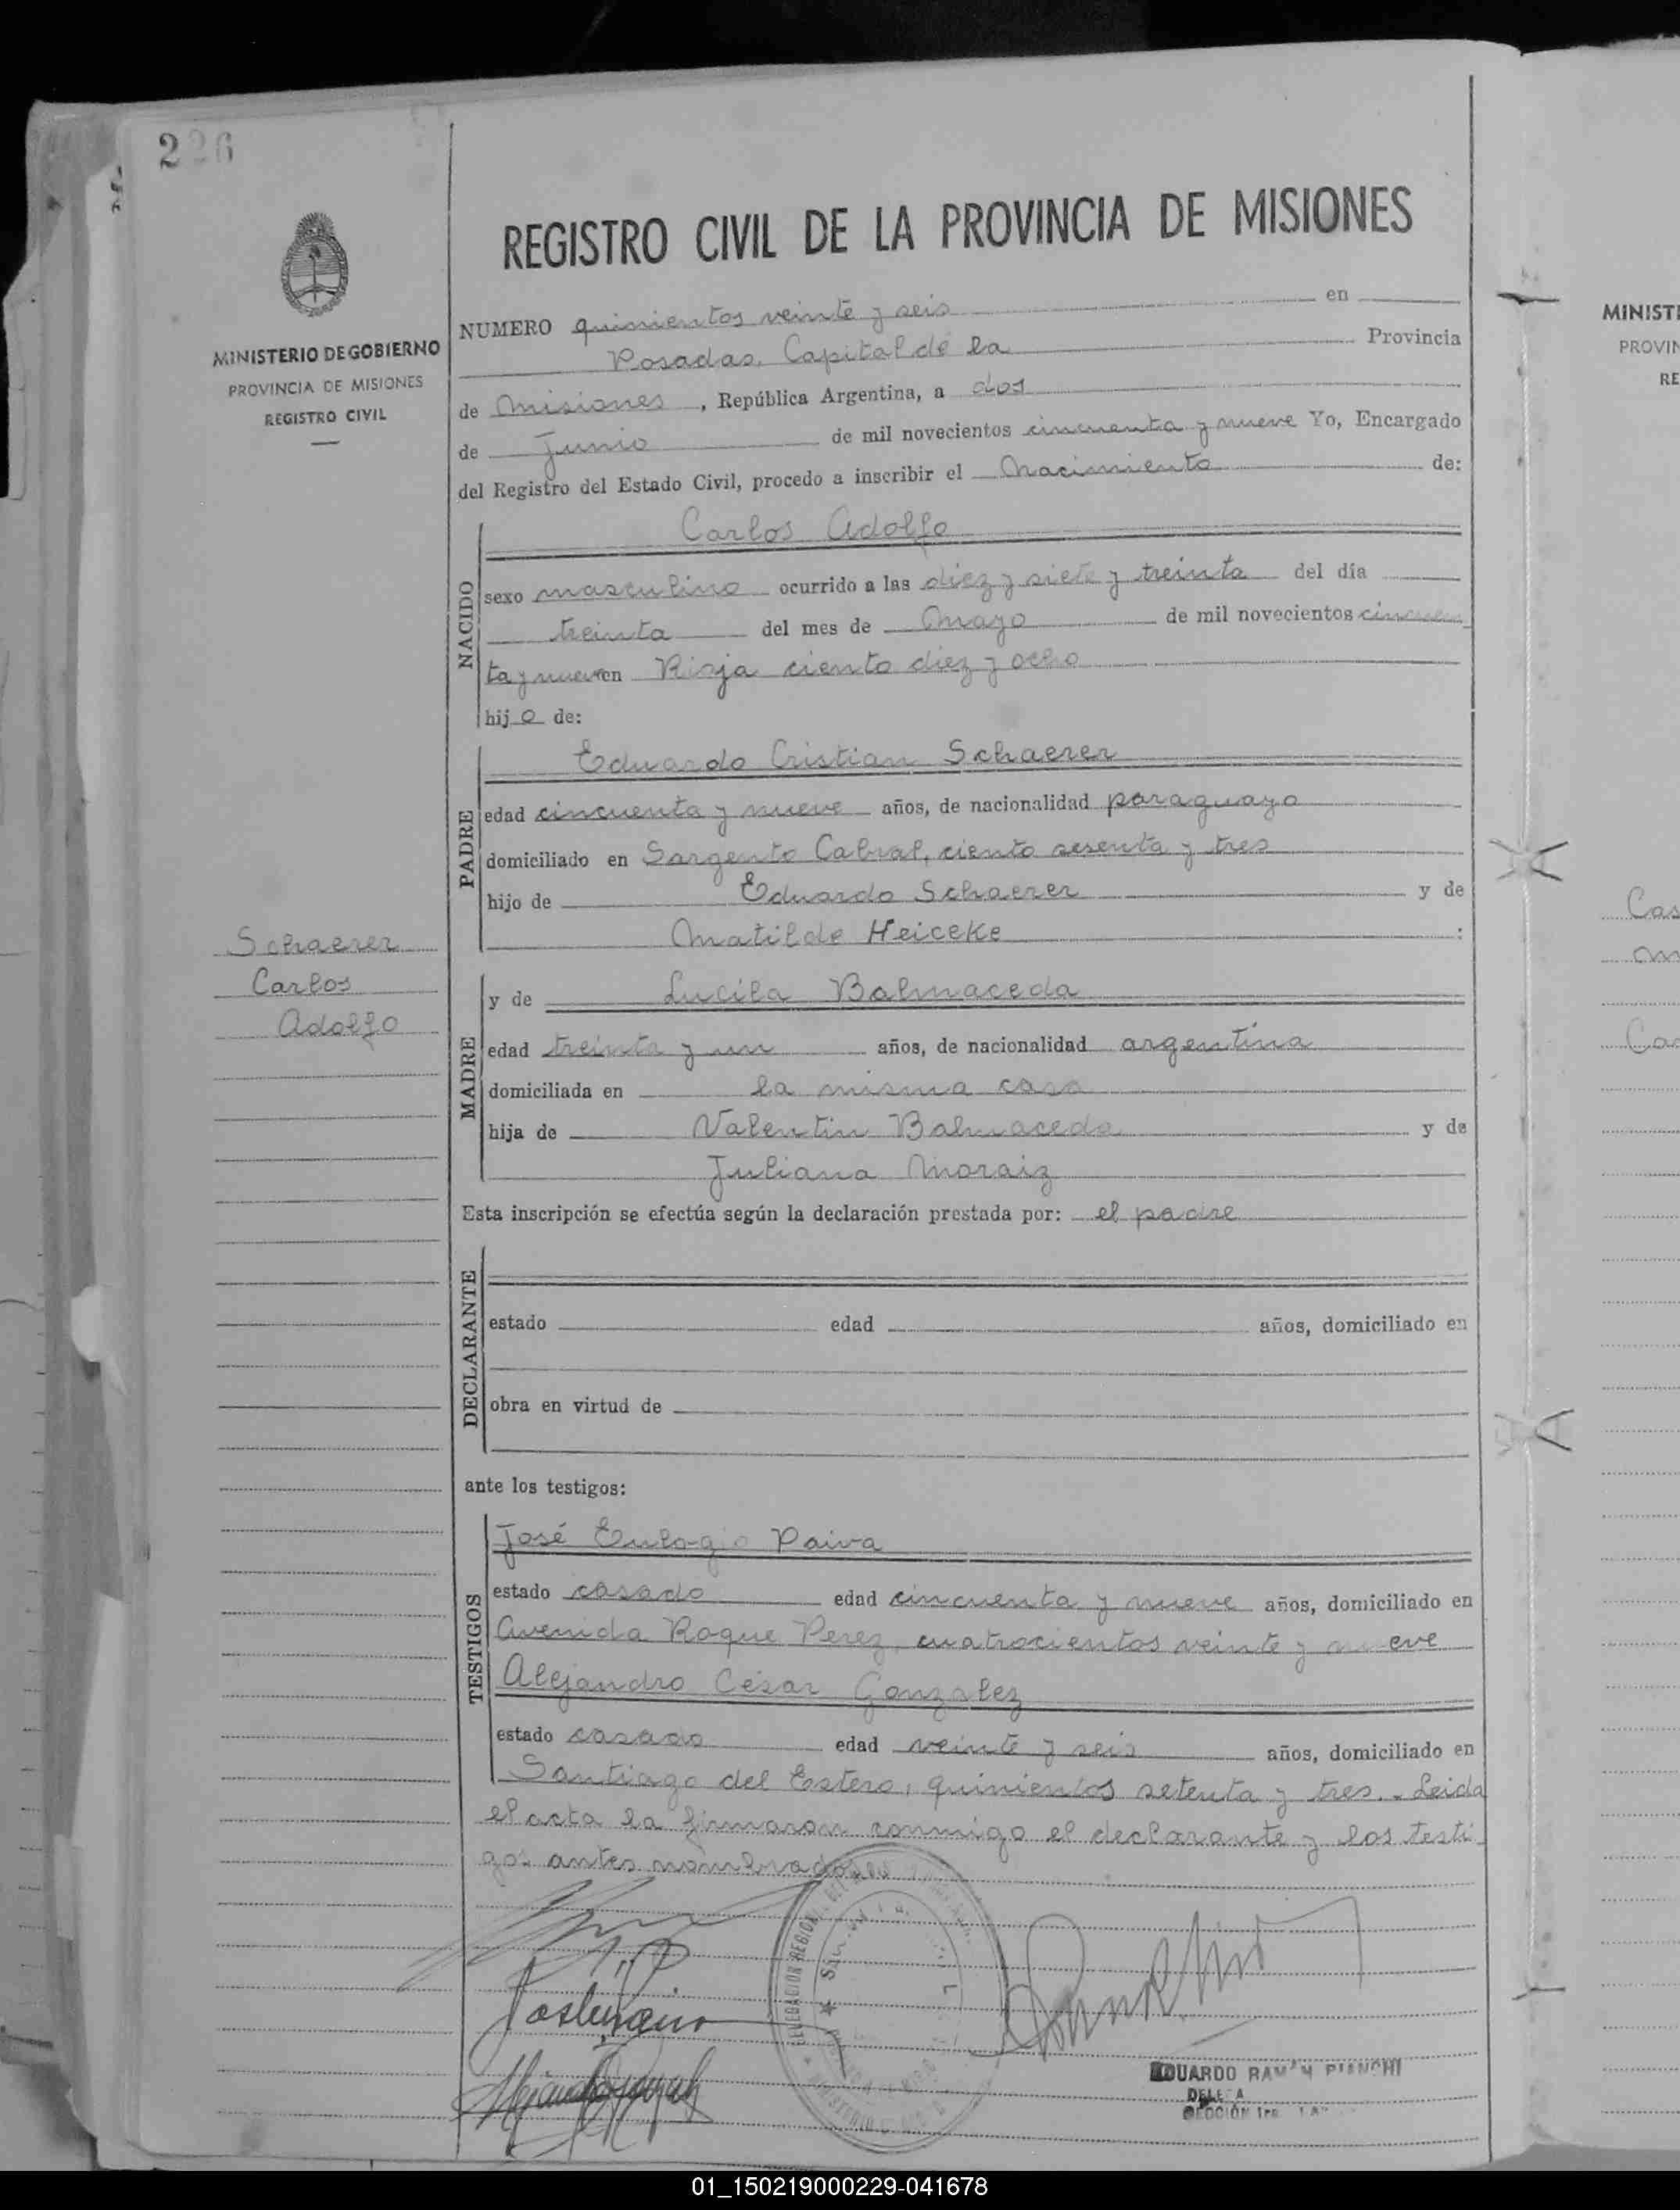 226
MINISTERIO DE GOBIERNO
PROVINCIA DE MISIONES
REGISTRO CIVIL
Schaerer
Carlos
Adolfo
REGISTRO CIVIL DE LA PROVINCIA DE MISIONES
NUMERO quinientos veinte y seis en
Posadas, Capital de la Provincia
de Misiones, República Argentina, a dos
de Junio de mil novecientos cincuenta y nueve Yo, Encargado
del Registro del Estado Civil, procedo a inscribir el Nacimiento de:
NACIDO
Carlos Adolfo
sexo masculino ocurrido a las diez y siete y treinta del día
treinta del mes de Mayo de mil novecientos cincuen
ta y nueve en Rioja ciento diez y ocho
hijo de:
PADRE
Eduardo Cristian Schaerer
edad cincuenta y nueve años, de nacionalidad paraguayo
domiciliado en Sargento Cabral, ciento sesenta y tres
hijo de Eduardo Schaerer y de
Matilde Heiceke :
MADRE
y de Lucila Balmaceda
edad treinta y un años, de nacionalidad argentina
domiciliada en la misma casa
hija de Valentin Balmaceda y de
Juliana Moraiz
Esta inscripción se efectúa según la declaración prestada por: el padre
DECLARANTE
estado edad años, domiciliado en
obra en virtud de
ante los testigos:
TESTIGOS
José Eulogio Paiva
estado casado edad cincuenta y nueve años, domiciliado en
Avenida Roque Perez, cuatrocientos veinte y nueve
Alejandro César Gonzalez
estado casado edad veinte y seis años, domiciliado en
Santiago del Estero, quinientos setenta y tres. Leida
el acta la firmaron conmigo el declarante y los testi
gos antes nombrados
DELEGACION REGIONAL
EDUARDO RAMON BIANCHI
SECCIÓN 1ra.
MINIST
PROVIN
RE
Cas
Ca
01_150219000229-041678